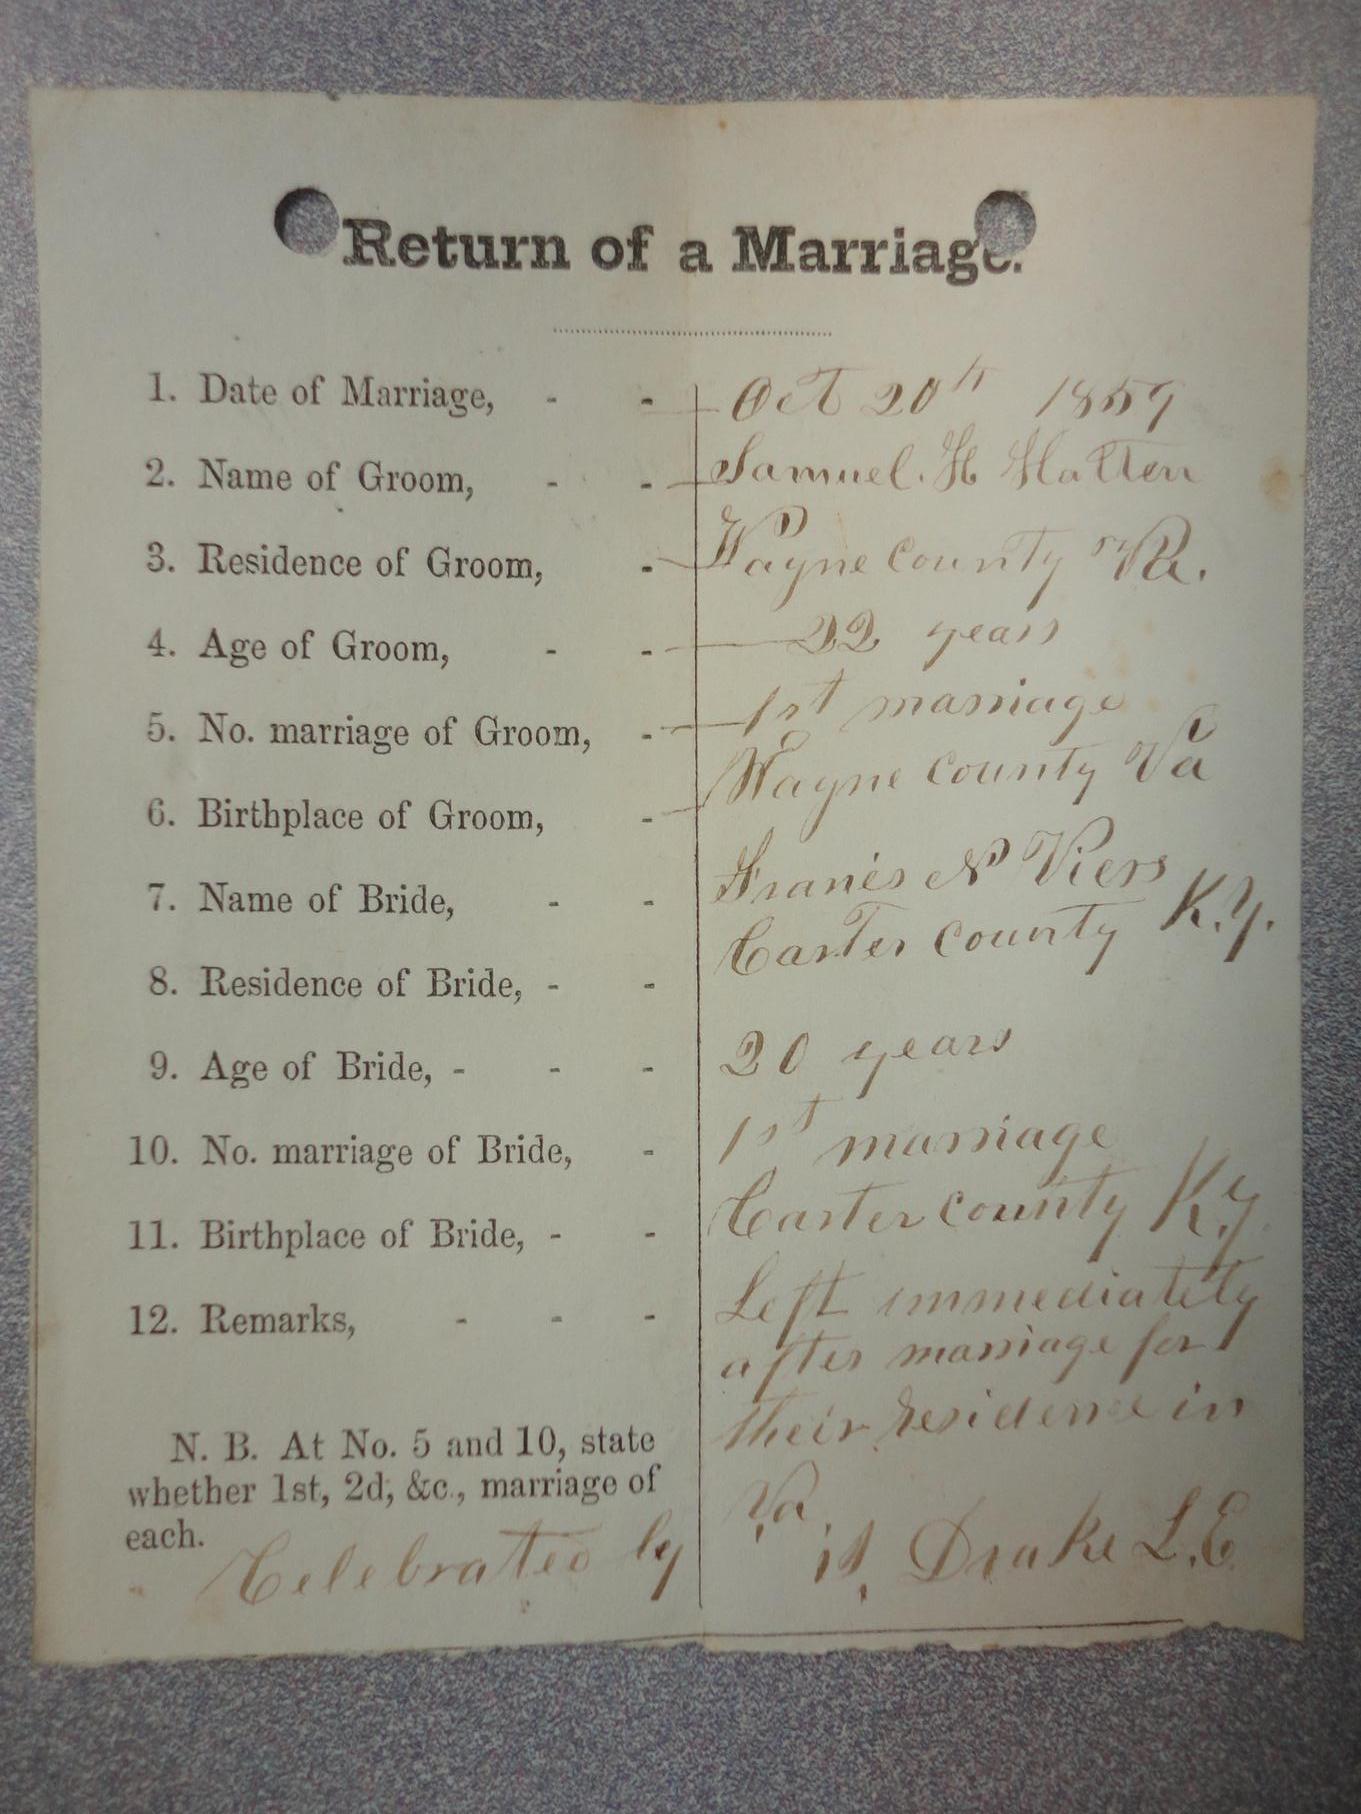 Return of a Marriage.
1. Date of Marriage, - - Oct 20th 1859
2. Name of Groom, - - Samuel. H Hatten
3. Residence of Groom, - Wayne County Va.
4. Age of Groom, - - 22 years
5. No. marriage of Groom, - 1st marriage
6. Birthplace of Groom, - Wayne County Va
7. Name of Bride, - - Francis N Viers
8. Residence of Bride, - - Carter County K.Y.
9. Age of Bride, - - - 20 years
10. No. marriage of Bride, - 1st marriage
11. Birthplace of Bride, - - Carter County Ky
12. Remarks, - - - Left immediately
after marriage for
their residence in
Va
N. B. At No. 5 and 10, state
whether 1st, 2d, &c., marriage of
each.
Celebrated by Drake